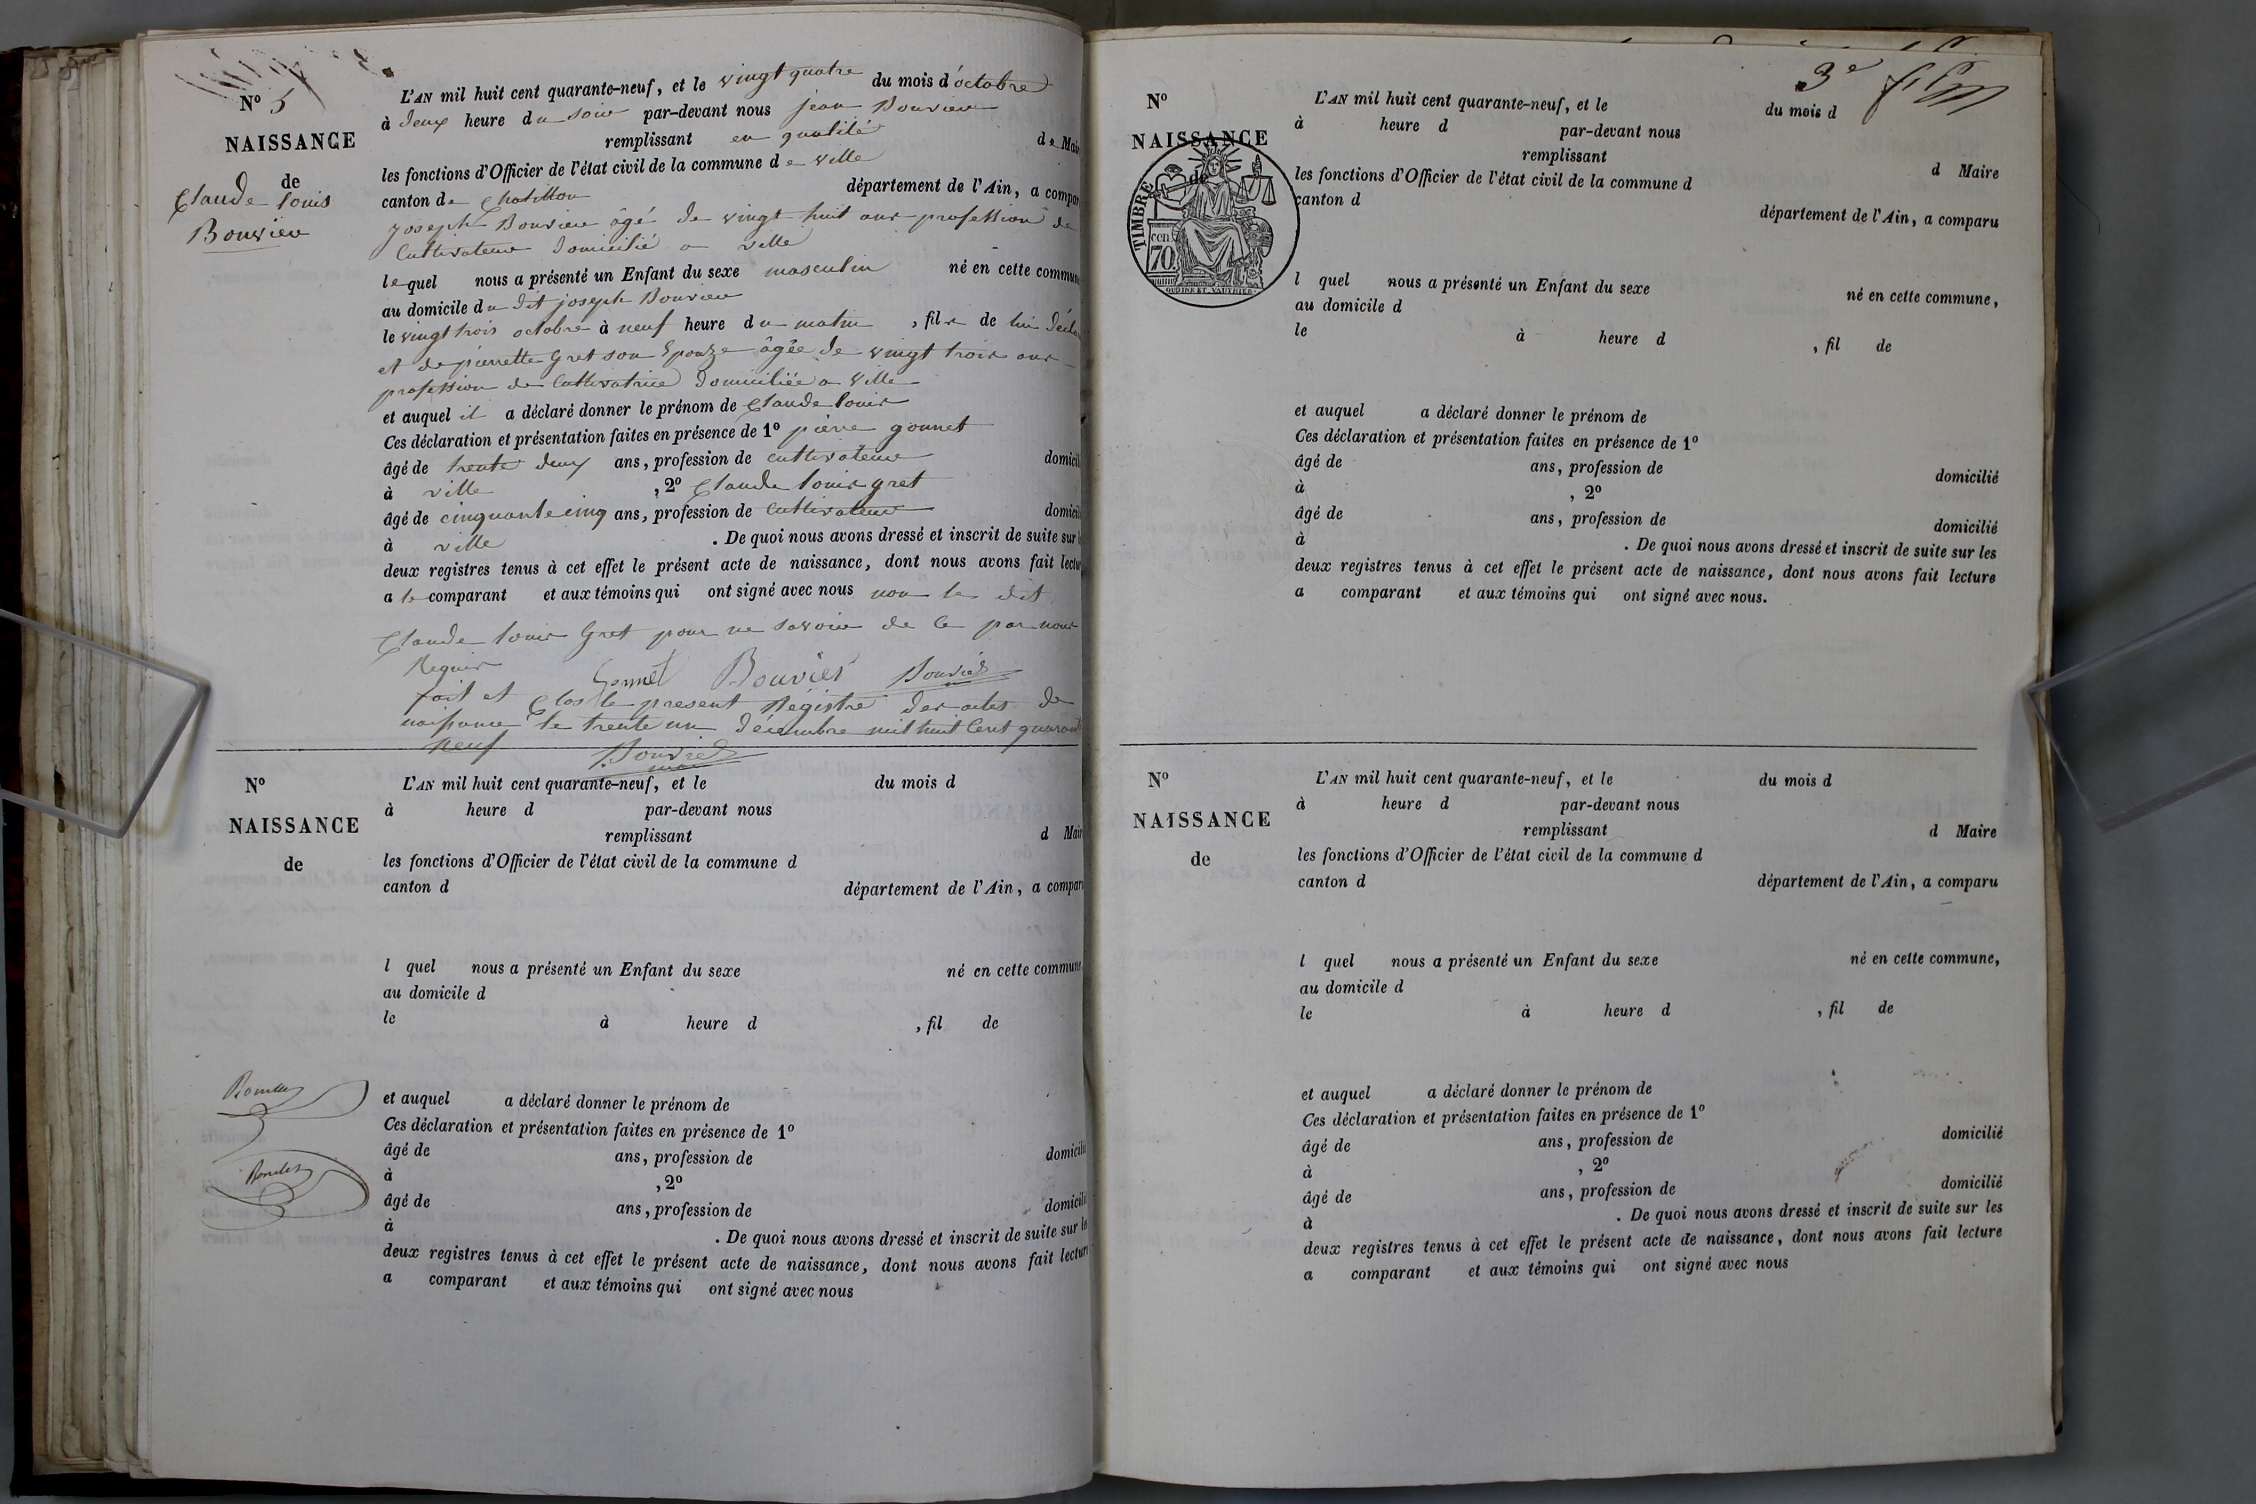 N° 5
NAISSANCE
de
Claude Louis
Bouvier
L'AN mil huit cent quarante-neuf, et le vingt quatre du mois d'octobre
à deux heure du soir par-devant nous jean Bouvier
remplissant en qualité de Mair
les fonctions d'Officier de l'état civil de la commune de ville
canton de Chatillon département de l'Ain, a compar
joseph Bouvier âgé de vingt huit ans profession de
Cultivateur domicilié a ville
lequel nous a présenté un Enfant du sexe masculin né en cette commune
au domicile du dit joseph Bouvier
le vingt trois octobre à neuf heure du matin , fils de lui décla
et de pierrette Gret son Epouze âgée de vingt trois ans
profession de Cultivatrice domiciliée a Ville
et auquel il a déclaré donner le prénom de Claude Louis
Ces déclaration et présentation faites en présence de 1° pierre gonnet
âgé de trente deux ans, profession de cultivateur domicil
à ville , 2° Claude Louis gret
âgé de cinquante cinq ans, profession de Cultivateur domicil
à ville . De quoi nous avons dressé et inscrit de suite sur l
deux registres tenus à cet effet le présent acte de naissance, dont nous avons fait lectur
a le comparant et aux témoins qui ont signé avec nous non le dit
Claude Louis Gret pour ne savoir de ce par nous
Requis Gonnet Bouvier Bouvier
fait et Clos le present Régistre des actes de
naissance le trente un décembre mil huit Cent quarant
neuf Bouvier
N°
NAISSANCE
de
L'AN mil huit cent quarante-neuf, et le du mois d
à heure d par-devant nous
remplissant d Mair
les fonctions d'Officier de l'état civil de la commune d
canton d département de l'Ain, a compar
l quel nous a présenté un Enfant du sexe né en cette commune
au domicile d
le à heure d , fil de
et auquel a déclaré donner le prénom de
Ces déclaration et présentation faites en présence de 1°
âgé de ans, profession de domicili
à , 2°
âgé de ans, profession de domicili
à . De quoi nous avons dressé et inscrit de suite sur le
deux registres tenus à cet effet le présent acte de naissance, dont nous avons fait lecture
a comparant et aux témoins qui ont signé avec nous
3e
N°
NAISSANCE
de
TIMBRE
cen.
70.
OUDINE ET. VAUTHIER.
L'AN mil huit cent quarante-neuf, et le du mois d
à heure d par-devant nous
remplissant d Maire
les fonctions d'Officier de l'état civil de la commune d
canton d département de l'Ain, a comparu
l quel nous a présenté un Enfant du sexe né en cette commune,
au domicile d
le à heure d , fil de
et auquel a déclaré donner le prénom de
Ces déclaration et présentation faites en présence de 1°
âgé de ans, profession de domicilié
à , 2°
âgé de ans, profession de domicilié
à . De quoi nous avons dressé et inscrit de suite sur les
deux registres tenus à cet effet le présent acte de naissance, dont nous avons fait lecture
a comparant et aux témoins qui ont signé avec nous.
N°
NAISSANCE
de
L'AN mil huit cent quarante-neuf, et le du mois d
à heure d par-devant nous
remplissant d Maire
les fonctions d'Officier de l'état civil de la commune d
canton d département de l'Ain, a comparu
l quel nous a présenté un Enfant du sexe né en cette commune,
au domicile d
le à heure d , fil de
et auquel a déclaré donner le prénom de
Ces déclaration et présentation faites en présence de 1°
âgé de ans, profession de domicilié
à , 2°
âgé de ans, profession de domicilié
à . De quoi nous avons dressé et inscrit de suite sur les
deux registres tenus à cet effet le présent acte de naissance, dont nous avons fait lecture
a comparant et aux témoins qui ont signé avec nous